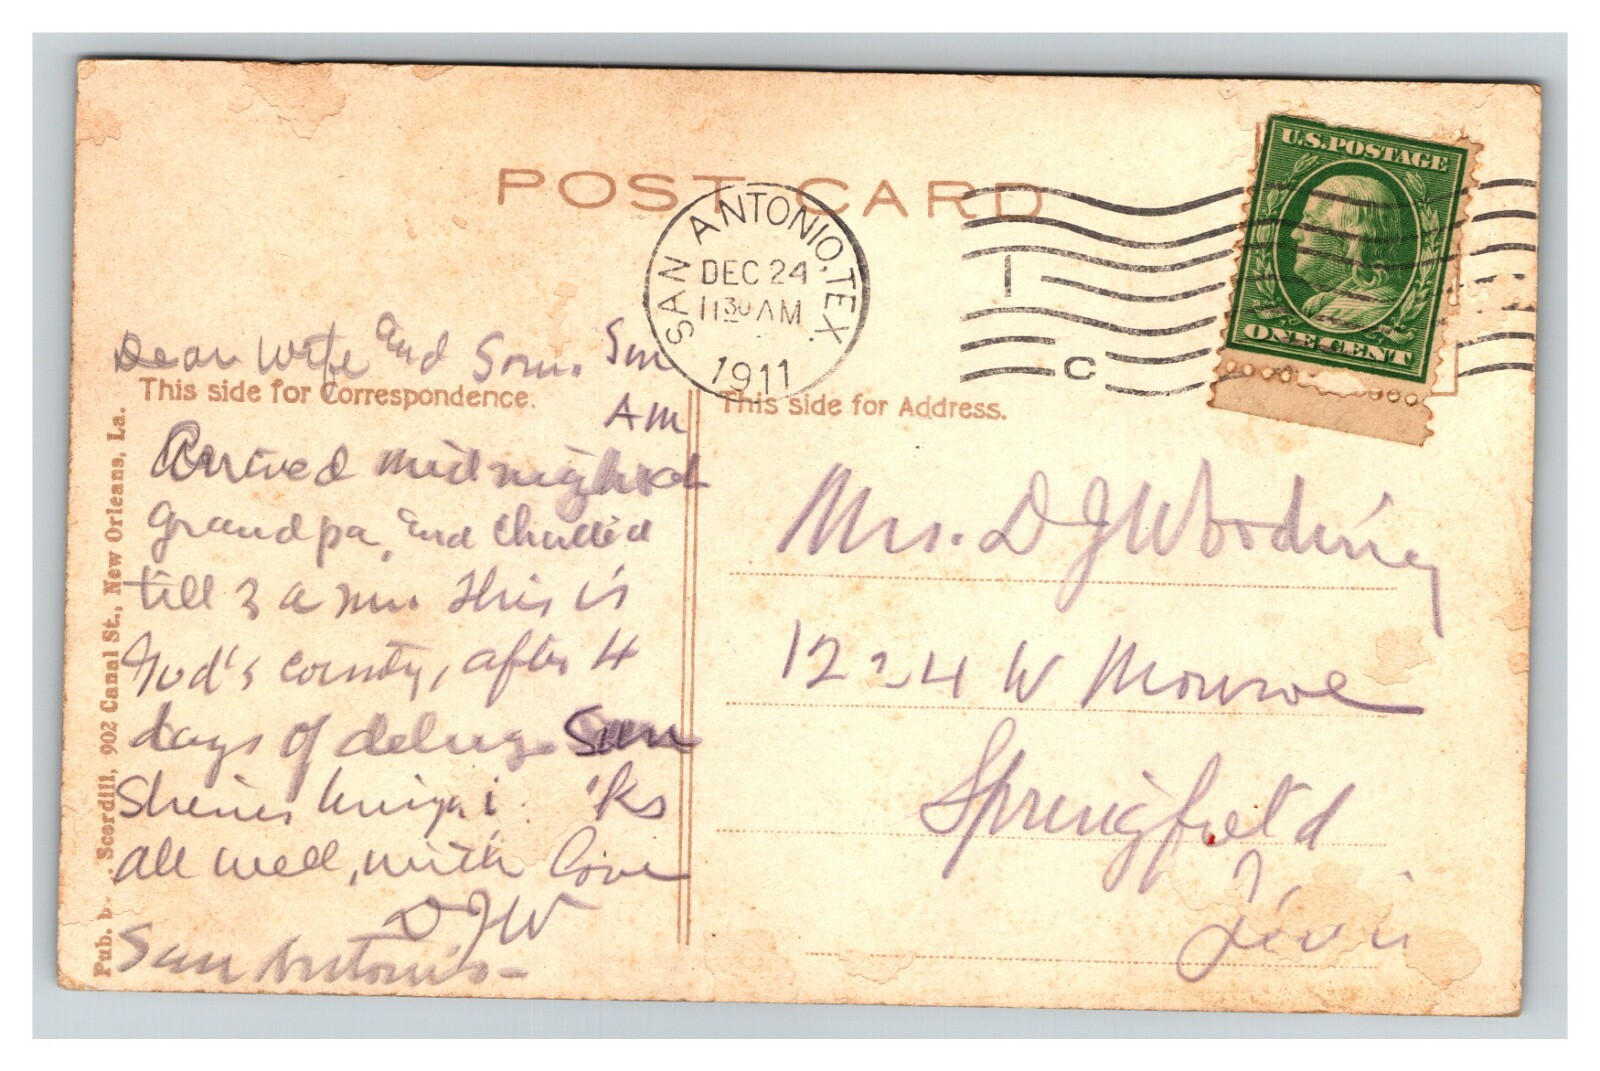 POST CARD
SAN ANTONIO, TEX.
DEC 24
11 30 AM
1911
1
C
U.S. POSTAGE
ONE CENT
Dear Wife and Son. Sun
AM
This side for Correspondence.
Arrived midnight
grandpa, and chatted
till 3 a m. This is
God's county, after 4
days of deluge Sun
Shines
all well, with love
DJW
San Antonio
Scordill, 902 Canal St., New Orleans, La.
This side for Address.
Mrs. D J Wooding
1224 W Monroe
Springfield